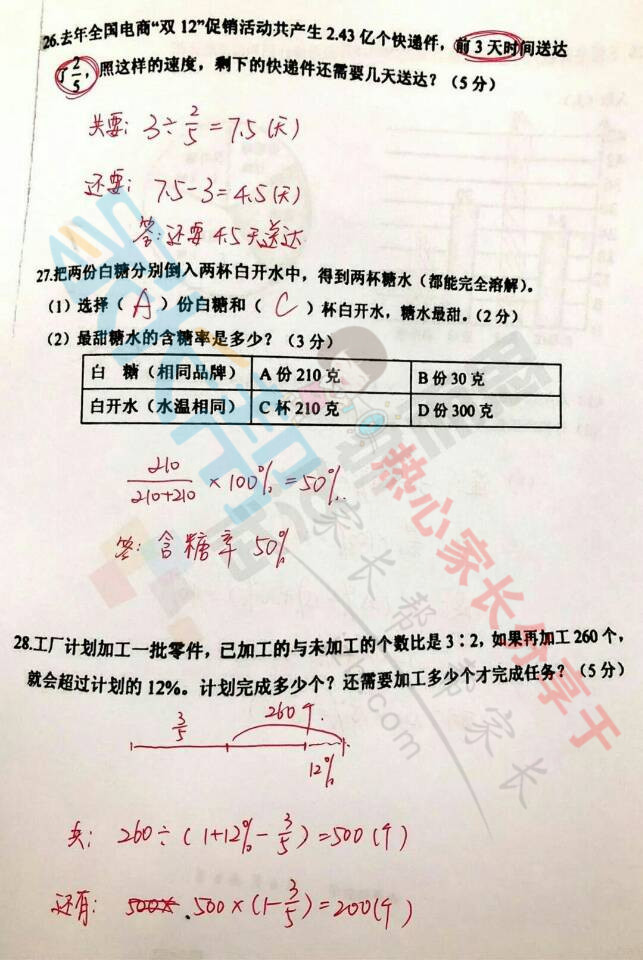 26.去年全国电商“双 12”促销活动共产生 2.43 亿个快递件，前 3 天时间送达
了2/5，照这样的速度，剩下的快递件还需要几天送达？（5 分）
共要：3÷2/5=7.5(天)
还要：7.5-3=4.5(天)
答：还要 4.5天送达
27.把两份白糖分别倒入两杯白开水中，得到两杯糖水（都能完全溶解）。
（1）选择（ A ）份白糖和（ C ）杯白开水，糖水最甜。（2 分）
（2）最甜糖水的含糖率是多少？（3 分）
白 糖（相同品牌） A 份 210 克 B 份 30 克
白开水（水温相同） C 杯 210 克 D 份 300 克
210/210+210 ×100%=50%.
答：含糖率 50%
28.工厂计划加工一批零件，已加工的与未加工的个数比是 3∶2，如果再加工 260 个，
就会超过计划的 12%。计划完成多少个？还需要加工多少个才完成任务？（5 分）
3/5 260个.
12%
共：260÷(1+12%-3/5)=500(个)
还有：500× .500×(1-3/5)=200(个)
热心家长分享于
家长帮
家长帮
.com